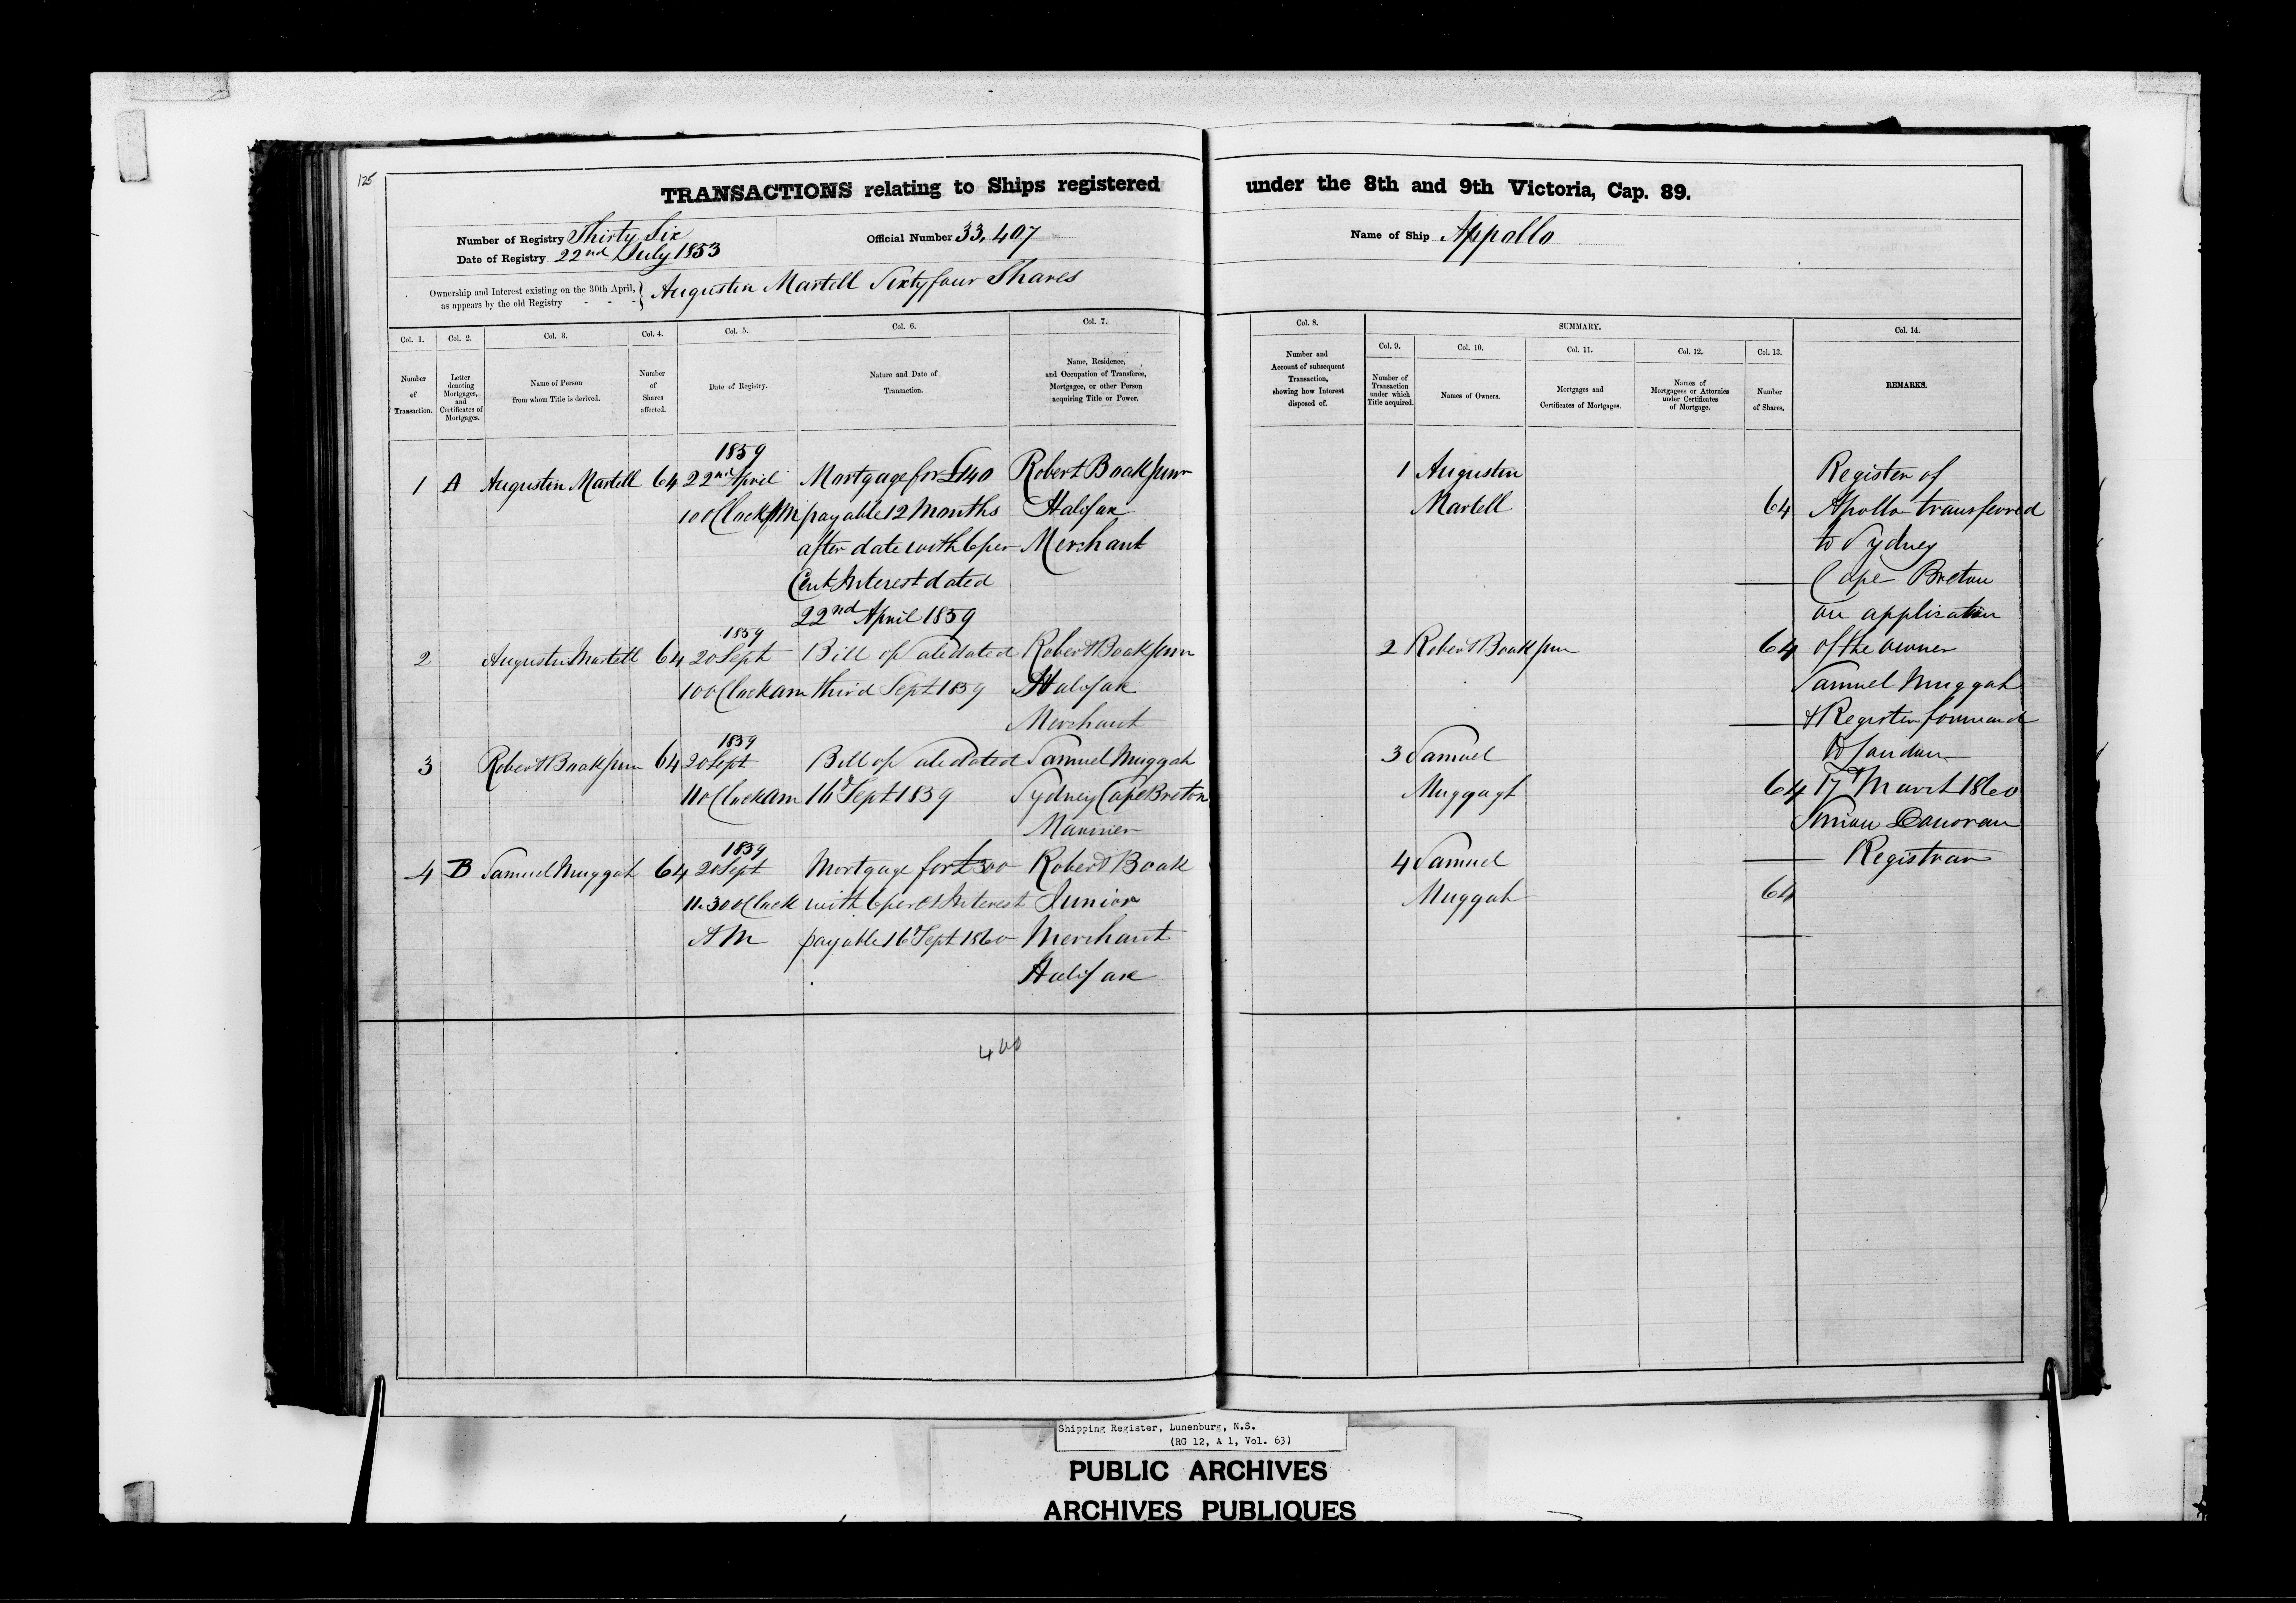 125
TRANSACTIONS relating to Ships registered under the 8th and 9th Victoria, Cap. 89.
Number of Registry Thirty Six
Date of Registry 22nd July 1853
Official Number 33,407
Name of Ship Appollo
Ownership and Interest existing on the 30th April,
as appears by the old Registry - - -
Augustin Martell Sixty four Shares
Col. 1.
Number
of
Transaction.
Col. 2.
Letter
denoting
Mortgages,
and
Certificates of
Mortgages.
Col. 3.
Name of Person
from whom Title is derived.
Col. 4.
Number
of
Shares
affected.
Col. 5.
Date of Registry.
Col. 6.
Nature and Date of
Transaction.
Col. 7.
Name, Residence,
and Occupation of Transferee,
Mortgagee, or other Person
acquiring Title or Power.
Col. 8.
Number and
Account of subsequent
Transaction,
showing how Interest
disposed of.
SUMMARY.
Col. 9.
Number of
Transaction
under which
Title acquired.
Col. 10.
Names of Owners.
Col. 11.
Mortgages and
Certificates of Mortgages.
Col. 12.
Names of
Mortgagees or Attornies
under Certificates
of Mortgage.
Col. 13.
Number
of Shares.
Col. 14.
REMARKS.
1859
1 A Augustin Martell 64 22nd April Mortgage for £140 Robert Boak Junr
10 OClock payable 12 Months Halifax
after date with 6 per Merchant
Cent Interest dated
22nd April 1859
1859
2 Augustin Martell 64 20 Sept Bill of Sale dated Robert Boak Junr
10 OClock am third Sept 1859 Halifax
Merchant
1859
3 Robert Boak Junr 64 20 Sept Bill of Sale dated Samuel Muggah
11 OClock am 16th Sept 1859 Sydney Cape Breton
Marriner
1859
4 B Samuel Muggah 64 20 Sept Mortgage for £300 Robert Boak
11.30 OClock with 6 per ct Interest Junior
AM payable 16th Sept 1860 Merchant
Halifax
400
1 Augustin
Martell 64
2 Robert Boak Junr 64
3 Samuel
Muggagh 64
4 Samuel
Muggah 64
Register of
Apollo transferred
to Sydney
Cape Breton
on application
of the owner
Samuel Muggah
& Register forward
to London
17th March 1860
Donovan
Registrar
Shipping Register, Lunenburg, N.S.
(RG 12, A 1, Vol. 63)
PUBLIC ARCHIVES
ARCHIVES PUBLIQUES